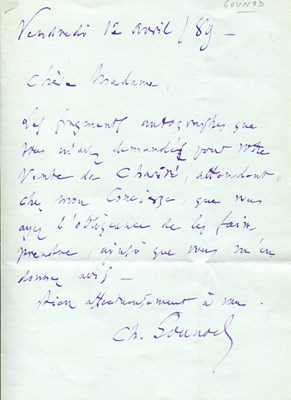 GOUNOD
Vendredi 12 avril / 89 —
Chère Madame,
Les fragments autographes que
vous m'avez demandés pour votre
Vente de Charité, attendent,
chez mon Concierge, que vous
ayez l'obligeance de les faire
prendre, ainsi que vous m'en
donnez avis —
bien affectueusement à vous.
Ch. Gounod